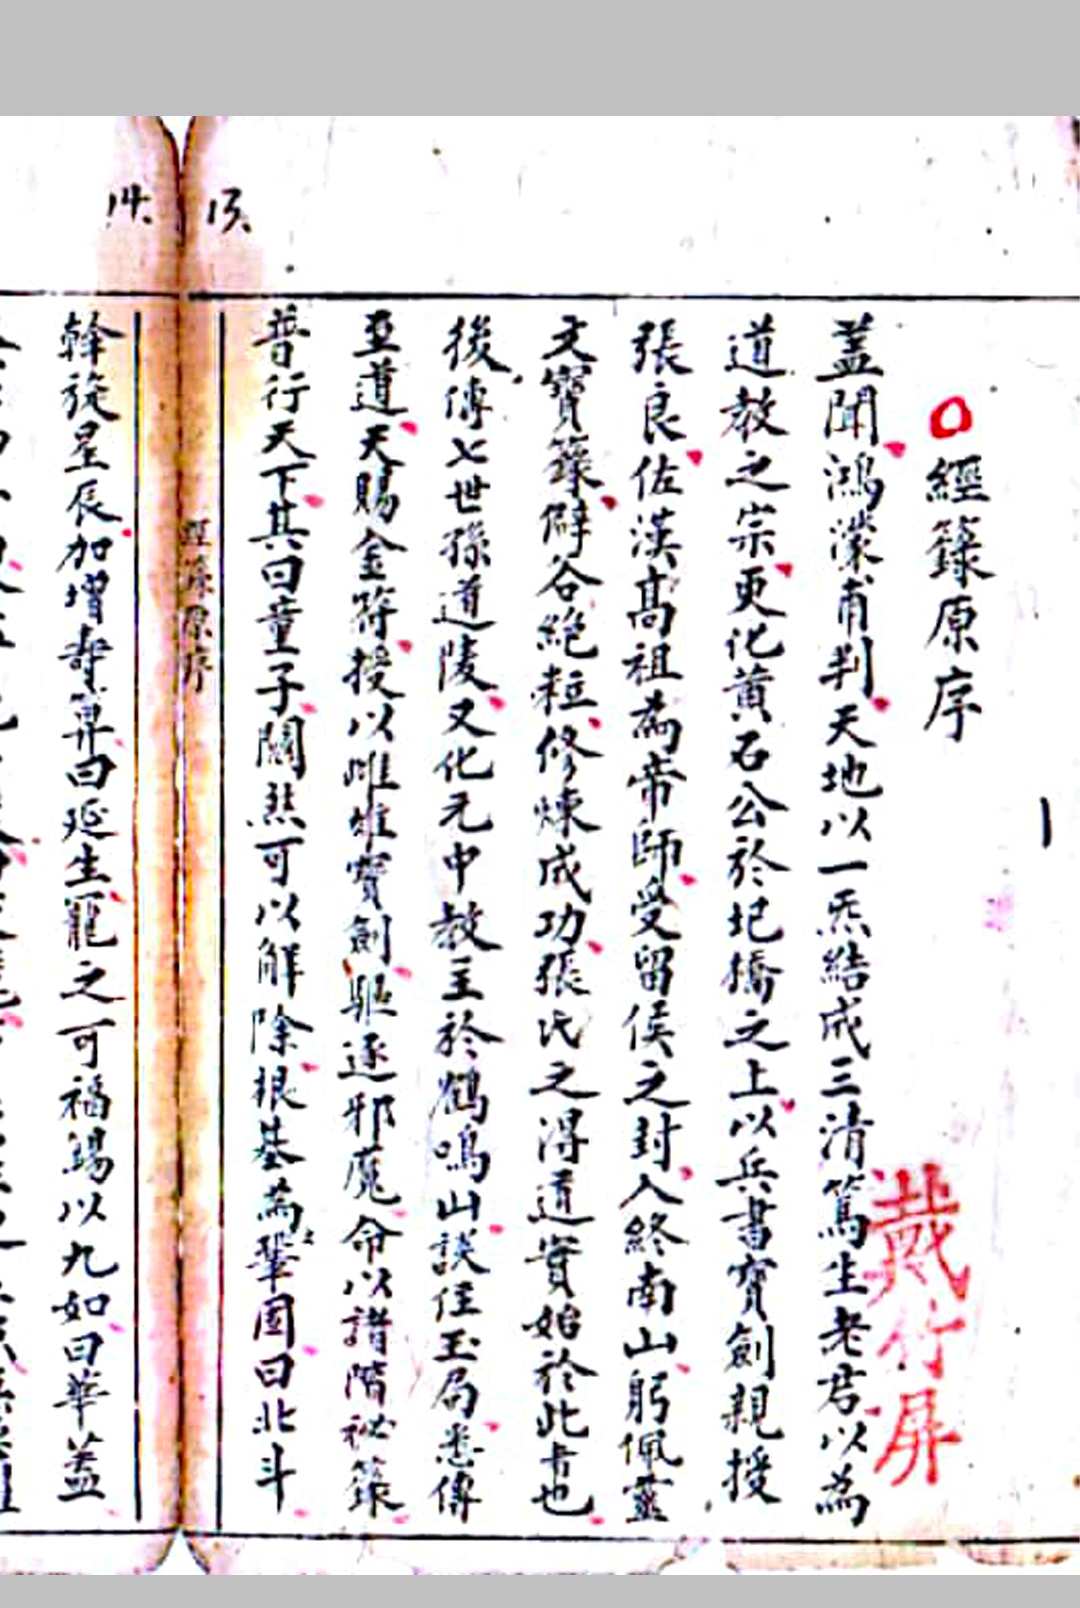 13、
經籙原序
蓋聞鴻濛甫判天地以一炁結成三清篤生老君以為
道教之宗更化黃石公於圯橋之上以兵書寶劍親授
張良佐漢高祖為帝師受留侯之封入終南山躬佩靈
文寶籙辟谷絕粒修煉成功張氏之得道實始於此書也
後傳七世孫道陵又化元中教主於鶴鳴山談經玉局悉傳
至道天賜金符授以雌雄寶劍驅逐邪魔命以諸階祕籙
普行天下其曰童子關煞可以解除根基為鞏固曰北斗
經籙原序
14、
斡旋星辰加增壽算曰延生籠之可福錫以九如曰華蓋
戴竹屏